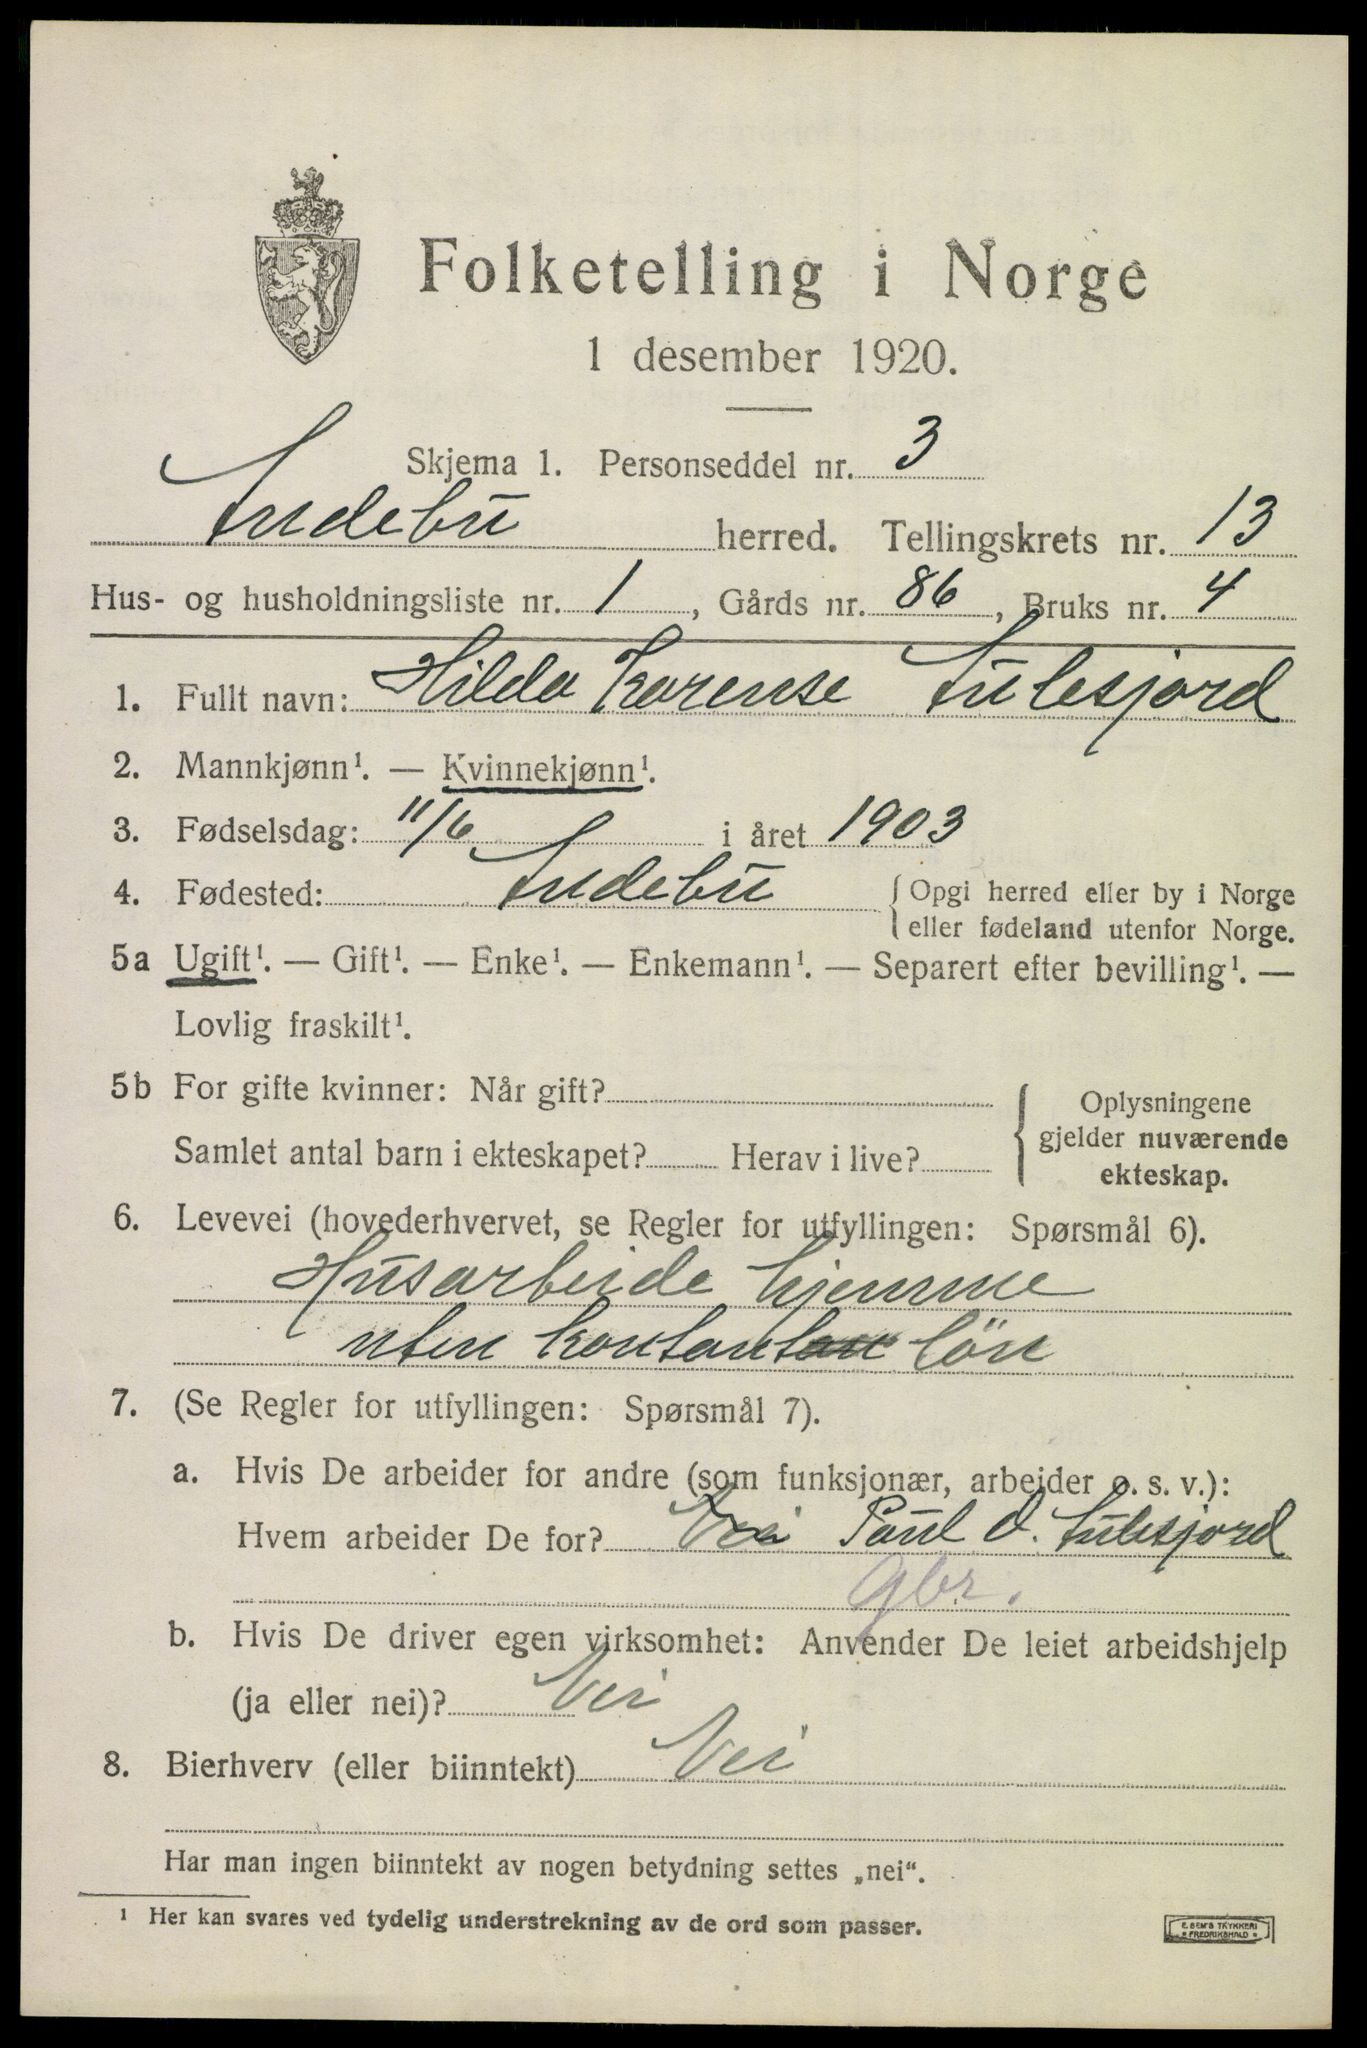 Folketelling i Norge
1 desember 1920.
Skjema 1. Personseddel nr. 3
Andebu herred. Tellingskrets nr. 13
Hus- og husholdningsliste nr. 1, Gårds nr. 86, Bruks nr. 4
1. Fullt navn: Hilda Karense Sulesjord
2. Mannkjønn¹. — Kvinnekjønn¹.
3. Fødselsdag: 11/6 i året 1903
4. Fødested: Andebu { Opgi herred eller by i Norge
eller fødeland utenfor Norge.
5a Ugift¹. — Gift¹. — Enke¹. — Enkemann¹. — Separert efter bevilling¹. —
Lovlig fraskilt¹.
5b For gifte kvinner: Når gift?
Samlet antal barn i ekteskapet? Herav i live?
Oplysningene
gjelder nuværende
ekteskap.
6. Levevei (hovederhvervet, se Regler for utfyllingen: Spørsmål 6).
Husarbeide hjemme
uten kontant løn
7. (Se Regler for utfyllingen: Spørsmål 7).
a. Hvis De arbeider for andre (som funksjonær, arbeider o. s. v.):
Hvem arbeider De for? Nei Paul O. Sulesjord
gbr.
b. Hvis De driver egen virksomhet: Anvender De leiet arbeidshjelp
(ja eller nei)? Nei
8. Bierhverv (eller biinntekt) Nei
Har man ingen biinntekt av nogen betydning settes „nei“.
¹ Her kan svares ved tydelig understrekning av de ord som passer.
E. SEM'S TRYKKERI
FREDRIKSHALD